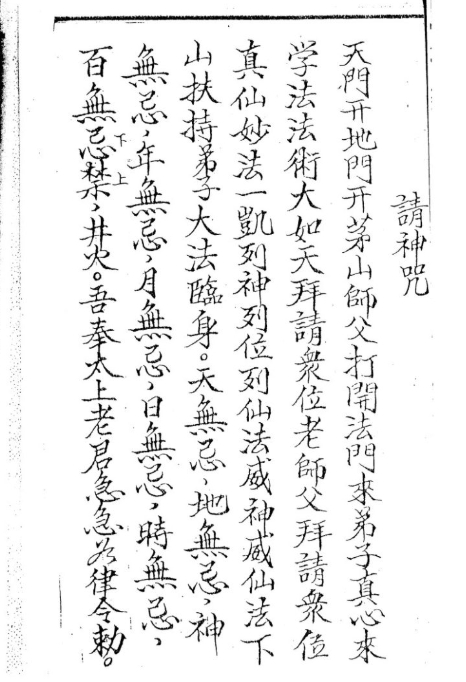 請神咒
天門开地門开茅山師父打開法門來弟子真心來
学法法術大如天拜請眾位老師父拜請眾位
真仙妙法一凱列神列位列仙法威神威仙法下
山扶持弟子大法臨身。天無忌，地無忌，神
無忌，年無忌，月無忌，日無忌，時無忌，
百無忌禁，井火。吾奉太上老君急急如律令勅。
下
上